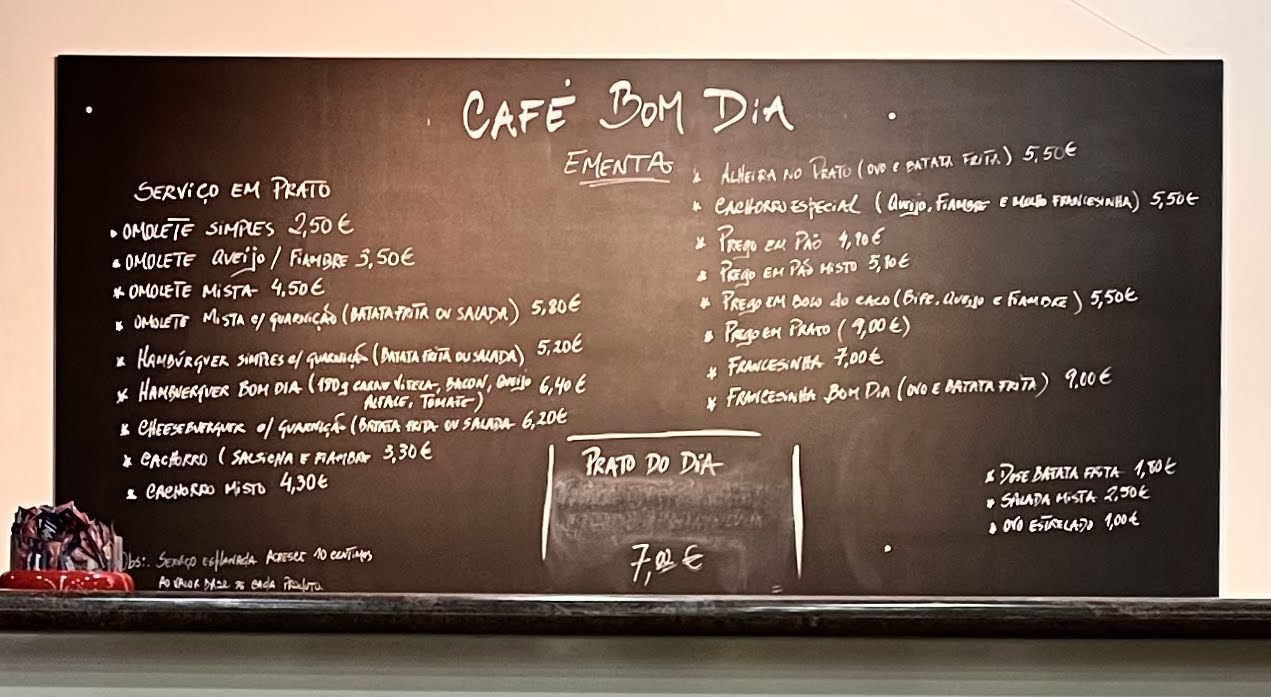 CAFÉ BOM DIA
EMENTA
SERVIÇO EM PRATO
OMOLETE SIMPLES 2,50€
OMOLETE QUEIJO / FIAMBRE 3,50€
OMOLETE MISTA 4,50€
OMOLETE MISTA C/ GUARNIÇÃO (BATATA FRITA OU SALADA) 5,80€
HAMBÚRGUER SIMPLES C/ GUARNIÇÃO (BATATA FRITA OU SALADA) 5,20€
HAMBUERGUER BOM DIA (150g CARNE VITELA, BACON, QUEIJO 6,40€
ALFACE, TOMATE)
CHEESEBUERGUER C/ GUARNIÇÃO (BATATA FRITA OU SALADA 6,20€
CACHORRO (SALSICHA E FIAMBRE 3,30€
CACHORRO MISTO 4,30€
Obs:. SERVIÇO ESPLANADA ACRESCE 10 CENTIMOS
AO VALOR BASE DE CADA PRODUTO.
ALHEIRA NO PRATO (OVO E BATATA FRITA) 5,50€
CACHORRO ESPECIAL (QUEIJO, FIAMBRE E MOLHO FRANCESINHA) 5,50€
PREGO EM PÃO 4,10€
PREGO EM PÃO MISTO 5,10€
PREGO EM BOLO DO CACO (BIFE, QUEIJO E FIAMBRE) 5,50€
PREGO EM PRATO (9,00€)
FRANCESINHA 7,00€
FRANCESINHA BOM DIA (OVO E BATATA FRITA) 9,00€
PRATO DO DIA
7,00 €
DOSE BATATA FRITA 1,80€
SALADA MISTA 2,50€
OVO ESTRELADO 1,00€